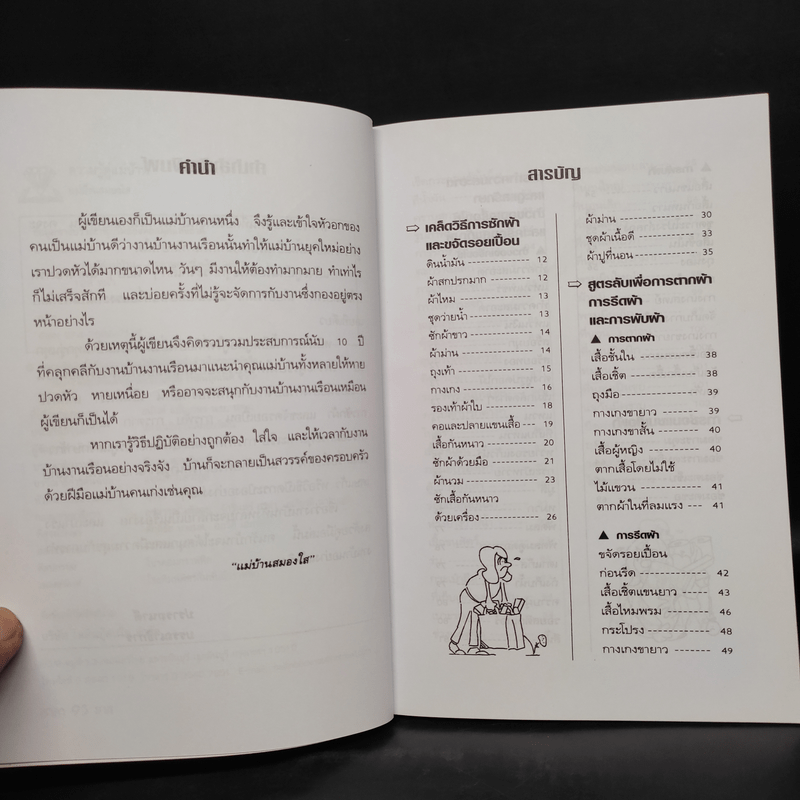 คำนำ
ผู้เขียนเองก็เป็นแม่บ้านคนหนึ่ง จึงรู้และเข้าใจหัวอกของ
คนเป็นแม่บ้านดีว่างานบ้านงานเรือนนั้นทำให้แม่บ้านยุคใหม่อย่าง
เราปวดหัวได้มากขนาดไหน วันๆ มีงานให้ต้องทำมากมาย ทำเท่าไร
ก็ไม่เสร็จสักที และบ่อยครั้งที่ไม่รู้จะจัดการกับงานซึ่งกองอยู่ตรง
หน้าอย่างไร
ด้วยเหตุนี้ผู้เขียนจึงคิดรวบรวมประสบการณ์นับ 10 ปี
ที่คลุกคลีกับงานบ้านงานเรือนมาแนะนำคุณแม่บ้านทั้งหลายให้หาย
ปวดหัว หายเหนื่อย หรืออาจจะสนุกกับงานบ้านงานเรือนเหมือน
ผู้เขียนก็เป็นได้
หากเรารู้วิธีปฏิบัติอย่างถูกต้อง ใส่ใจ และให้เวลากับงาน
บ้านงานเรือนอย่างจริงจัง บ้านก็จะกลายเป็นสวรรค์ของครอบครัว
ด้วยฝีมือแม่บ้านคนเก่งเช่นคุณ
"แม่บ้านสมองใส"
สารบัญ
เคล็ดวิธีการซักผ้า
และขจัดรอยเปื้อน
ดินน้ำมัน 12
ผ้าสกปรกมาก 12
ผ้าไหม 13
ชุดว่ายน้ำ 13
ซักผ้าขาว 14
ผ้าม่าน 14
ถุงเท้า 15
กางเกง 16
รองเท้าผ้าใบ 18
คอและปลายแขนเสื้อ 19
เสื้อกันหนาว 20
ซักผ้าด้วยมือ 21
ผ้านวม 23
ซักเสื้อกันหนาว
ด้วยเครื่อง 26
ผ้าม่าน 30
ชุดผ้าเนื้อดี 33
ผ้าปูที่นอน 35
สูตรลับเพื่อการตากผ้า
การรีดผ้า
และการพับผ้า
▲ การตากผ้า
เสื้อชั้นใน 38
เสื้อเชิ้ต 38
ถุงมือ 39
กางเกงขายาว 39
กางเกงขาสั้น 40
เสื้อผู้หญิง 40
ตากเสื้อโดยไม่ใช้
ไม้แขวน 41
ตากผ้าในที่ลมแรง 41
▲ การรีดผ้า
ขจัดรอยเปื้อน
ก่อนรีด 42
เสื้อเชิ้ตแขนยาว 43
เสื้อไหมพรม 46
กระโปรง 48
กางเกงขายาว 49